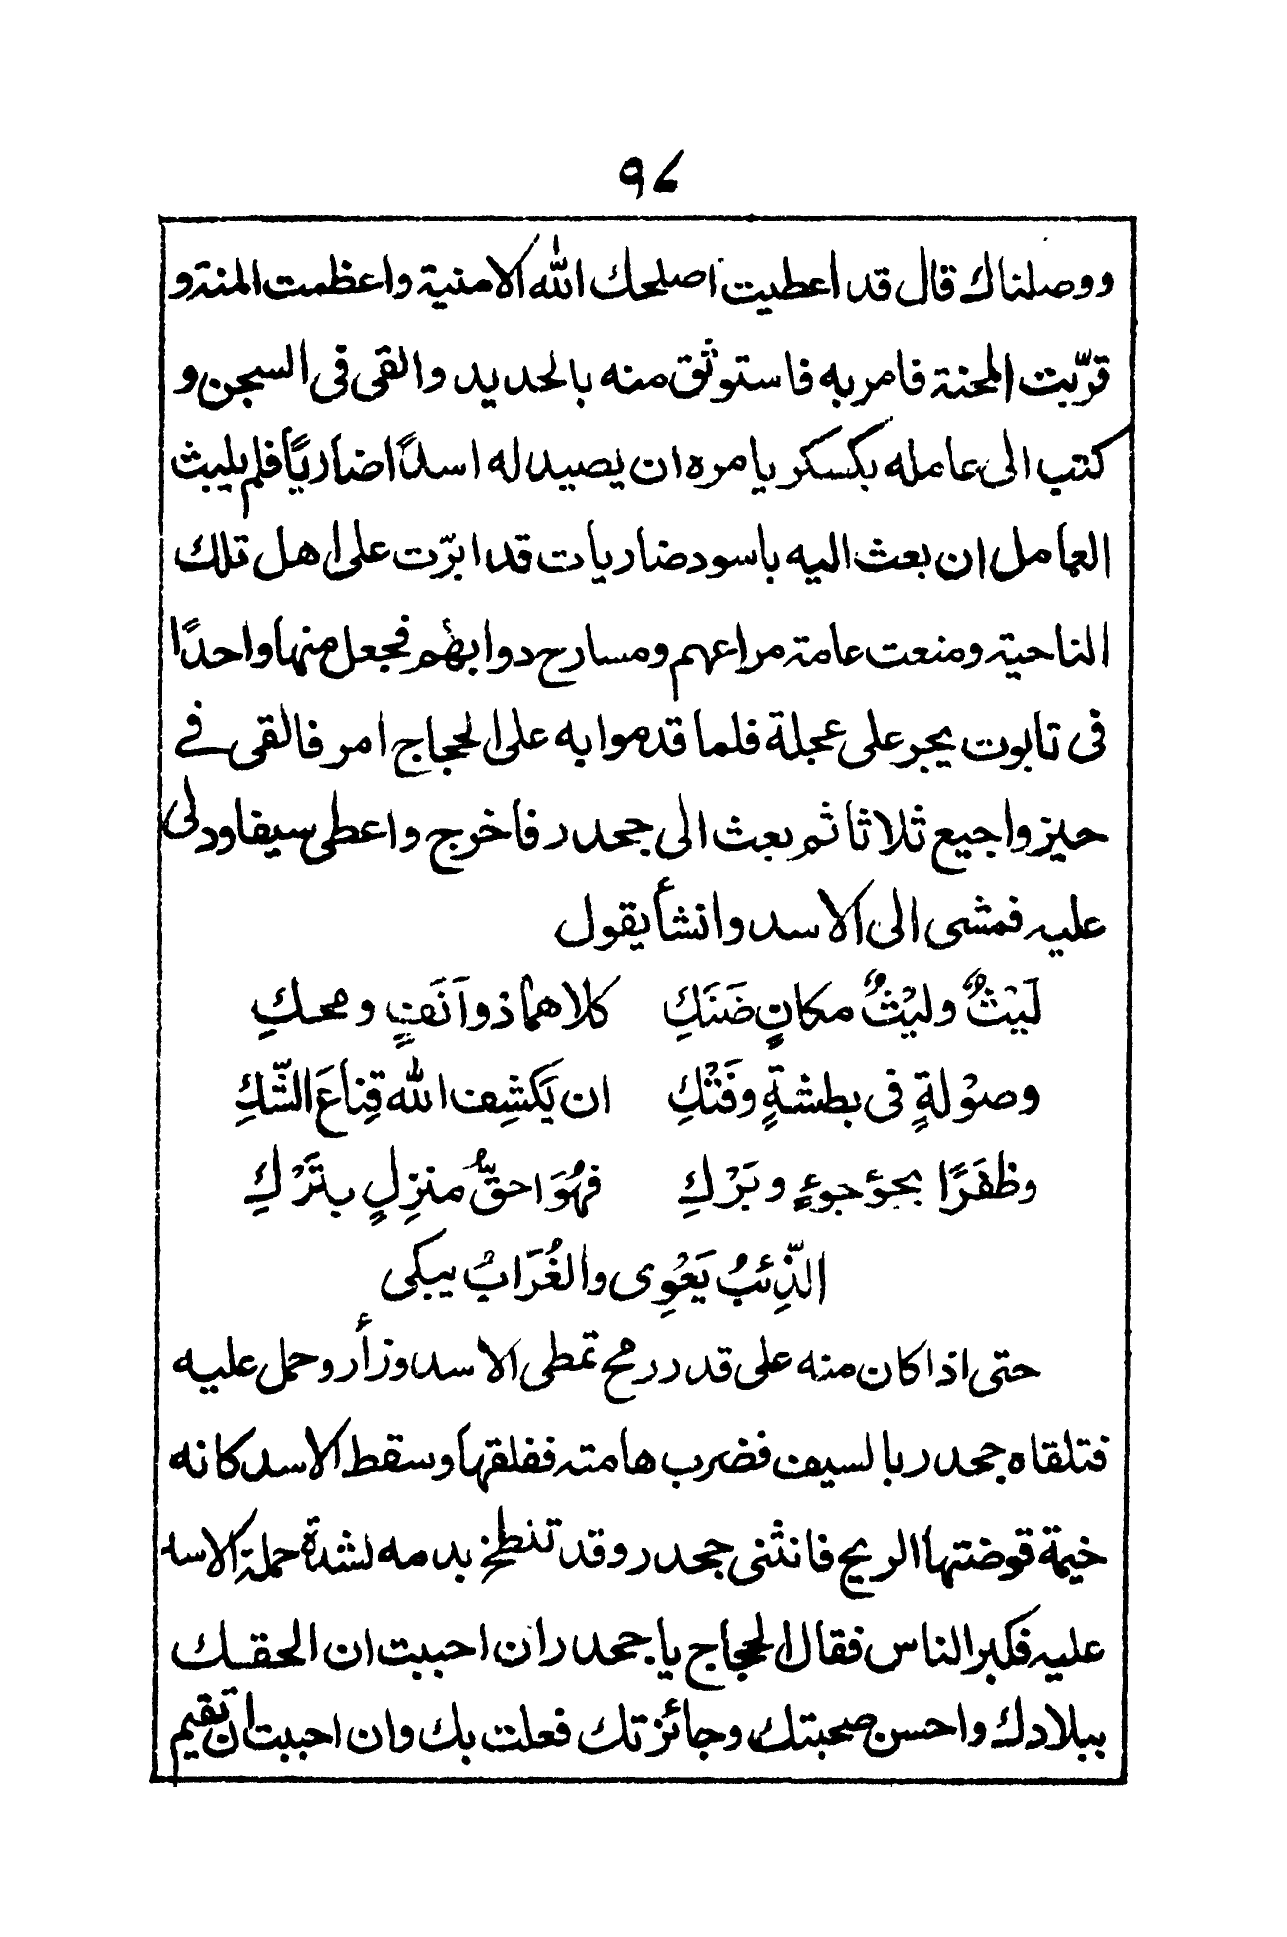 ۹۶
ووصلناك قال قد اعطيت اصلحك الله الامنية واعظمت المنة و
قرّبت المحنة فامر به فاستوثق منه بالحديد والقى فى السجن و
كتب الى عامله بكسكر يامره ان يصيد له اسدًا ضاريًا فلم يلبث
العامل ان بعث اليه باسود ضاريات قد ابرّت على اهل تلك
الناحية ومنعت عامة مراعيهم ومسارح دوابهم فجعل منها واحدًا
فى تابوت يجر على عجلة فلما قدموا به على الحجاج امر فالقى فے
حيز واجيع ثلاثا ثم بعث الى جحدر فاخرج واعطى سيفا ودلى
عليه فمشى الى الاسد وانشأ يقول
لَيْثٌ وليْثٌ مكانٍ ضَنَكِ كلاهما ذو اَنَفٍ ومحكِ
وصوْلةٍ فى بطشةٍ وفَتْكِ ان يَكشِف الله قِناعَ الشّكِ
وظفَرًا بجؤجوءٍ وبَرْكِ فهُوَ احقُّ منزِلٍ بتَرْكِ
الذِّئبُ يَعْوِى والغُرَابُ يبكى
حتى اذا كان منه على قدر رمح تمطى الاسد وزأر وحمل عليه
فتلقاه جحدر بالسيف فضرب هامته ففلقها وسقط الاسد كانه
خيمة قوضتها الريح فانثنى جحدر وقد تنطخ بدمه لشدة حملة الاسد
عليه فكبر الناس فقال الحجاج يا جحدر ان احببت ان الحقك
ببلادك واحسن صحبتك وجائزتك فعلت بك وان احببت ان تقيم